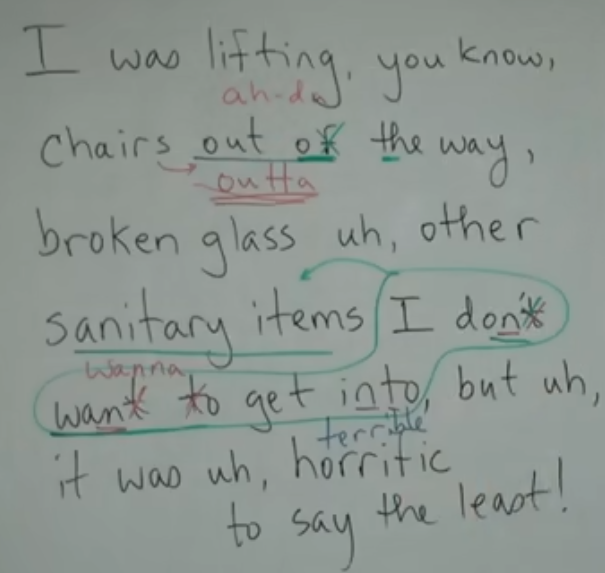 I was lifting, you know,
ah-da
chairs out of the way,
outta
broken glass uh, other
sanitary items I don't
wanna
want to get into, but uh,
terrible
it was uh, horrific
to say the least!